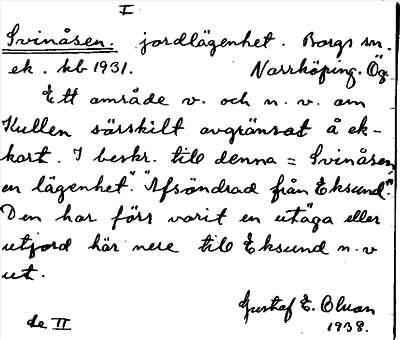 I
Svinåsen. jordlägenhet. Borgs sn.
ek. kb 1931. Norrköping. Ög.
Ett område v. och n. v. om
Kullen särskilt avgränsat å ek-
kart. I beskr. till denna = Svinåsen,
en lägenhet". "Afsöndrad från Eksund".
Den har förs varit en utäga eller
utjord här nere till Eksund n. v
ut.
Gustaf E. Oluan
1938.
de II